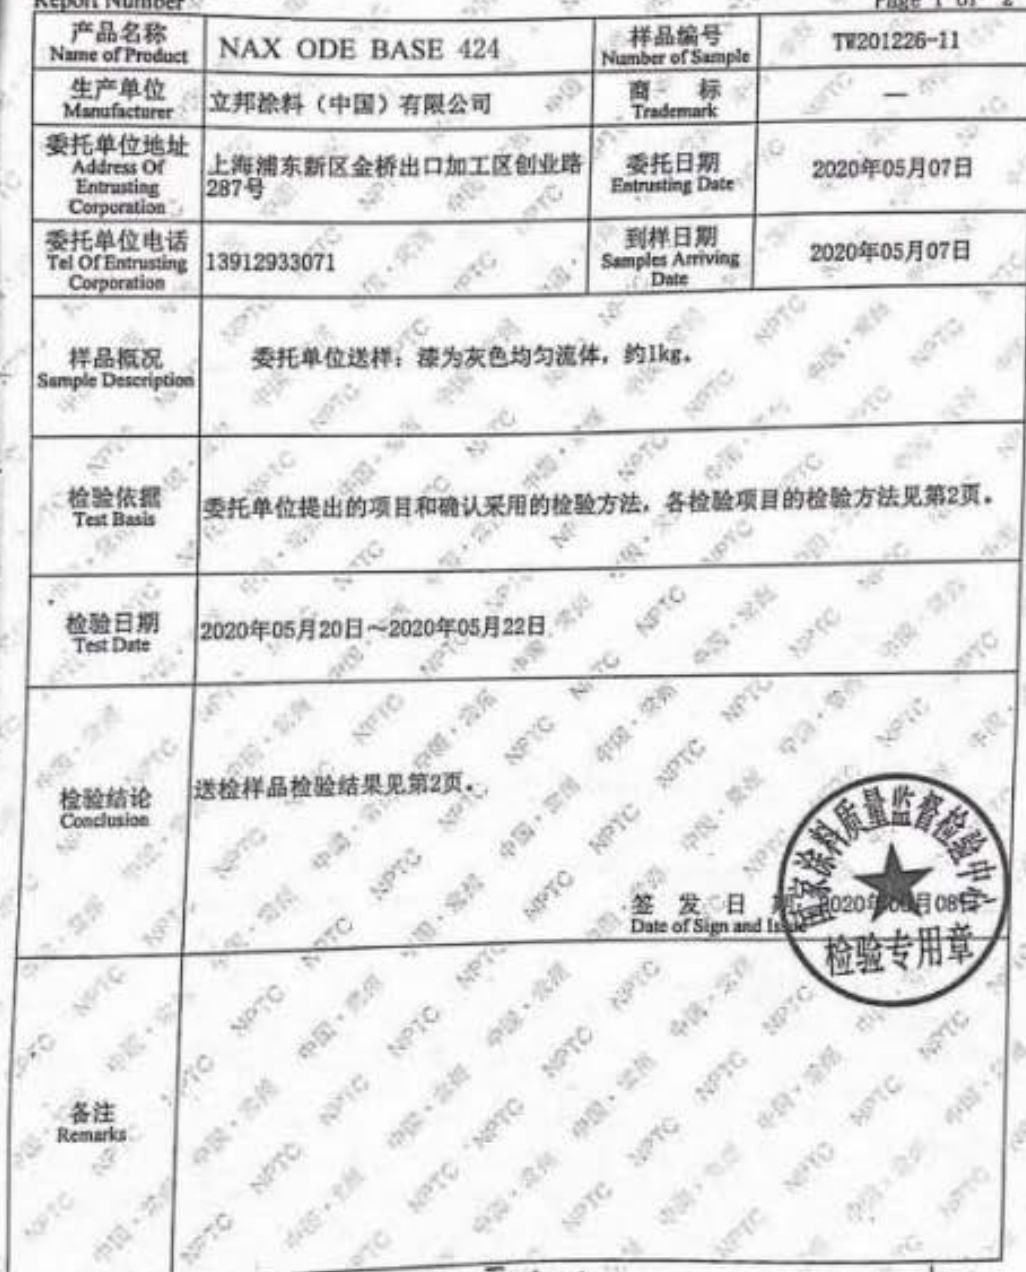 Report Number
Page 1 of 2
产品名称
Name of Product
NAX ODE BASE 424
样品编号
Number of Sample
TW201226-11
生产单位
Manufacturer
立邦涂料（中国）有限公司
商 标
Trademark
—
委托单位地址
Address Of
Entrusting
Corporation
上海浦东新区金桥出口加工区创业路
287号
委托日期
Entrusting Date
2020年05月07日
委托单位电话
Tel Of Entrusting
Corporation
13912933071
到样日期
Samples Arriving
Date
2020年05月07日
样品概况
Sample Description
委托单位送样；漆为灰色均匀流体，约1kg。
检验依据
Test Basis
委托单位提出的项目和确认采用的检验方法，各检验项目的检验方法见第2页。
检验日期
Test Date
2020年05月20日～2020年05月22日
检验结论
Conclusion
送检样品检验结果见第2页。
国家涂料质量监督检验中心
检验专用章
签 发 日 期
2020年 月08日
Date of Sign and Issue
备注
Remarks
NPTC
中国·常州